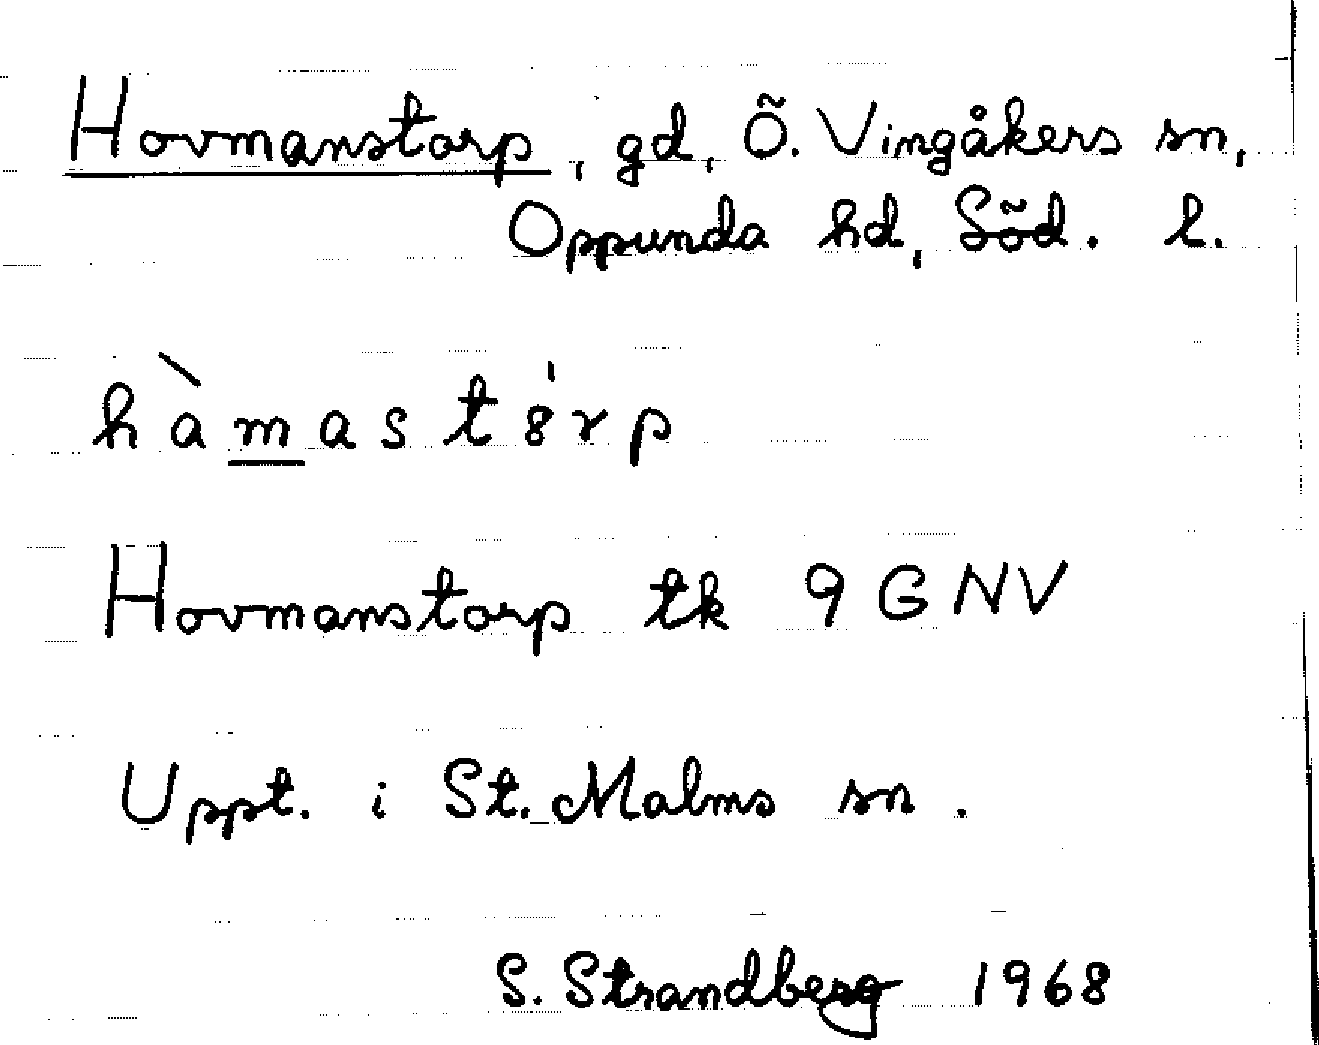 Hovmanstorp, gd, Ö. Vingåkers sn,
Oppunda hd, Söd. l.
hàmastórp
Hovmanstorp tk 9 G NV
Uppt. i St. Malms sn.
S. Strandberg 1968